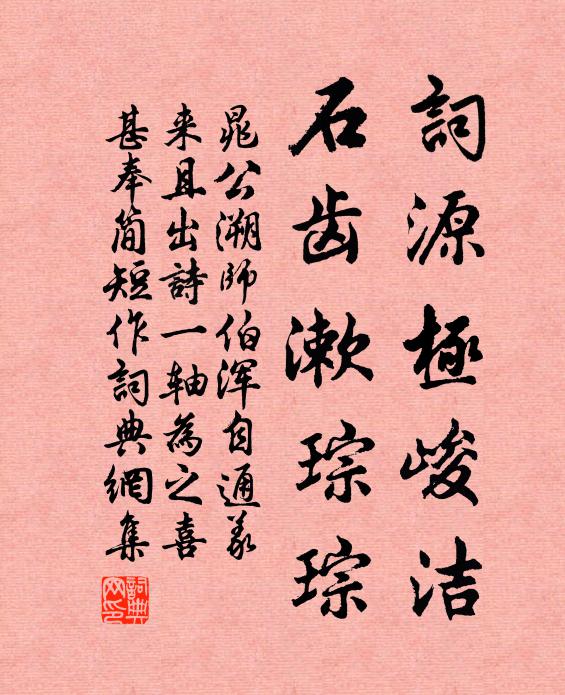 詞源極峻洁
石齿漱琮琮
晁公溯師伯浑自通義
来且出詩一轴為之喜
甚奉简短作詞典網集
詞典
网印